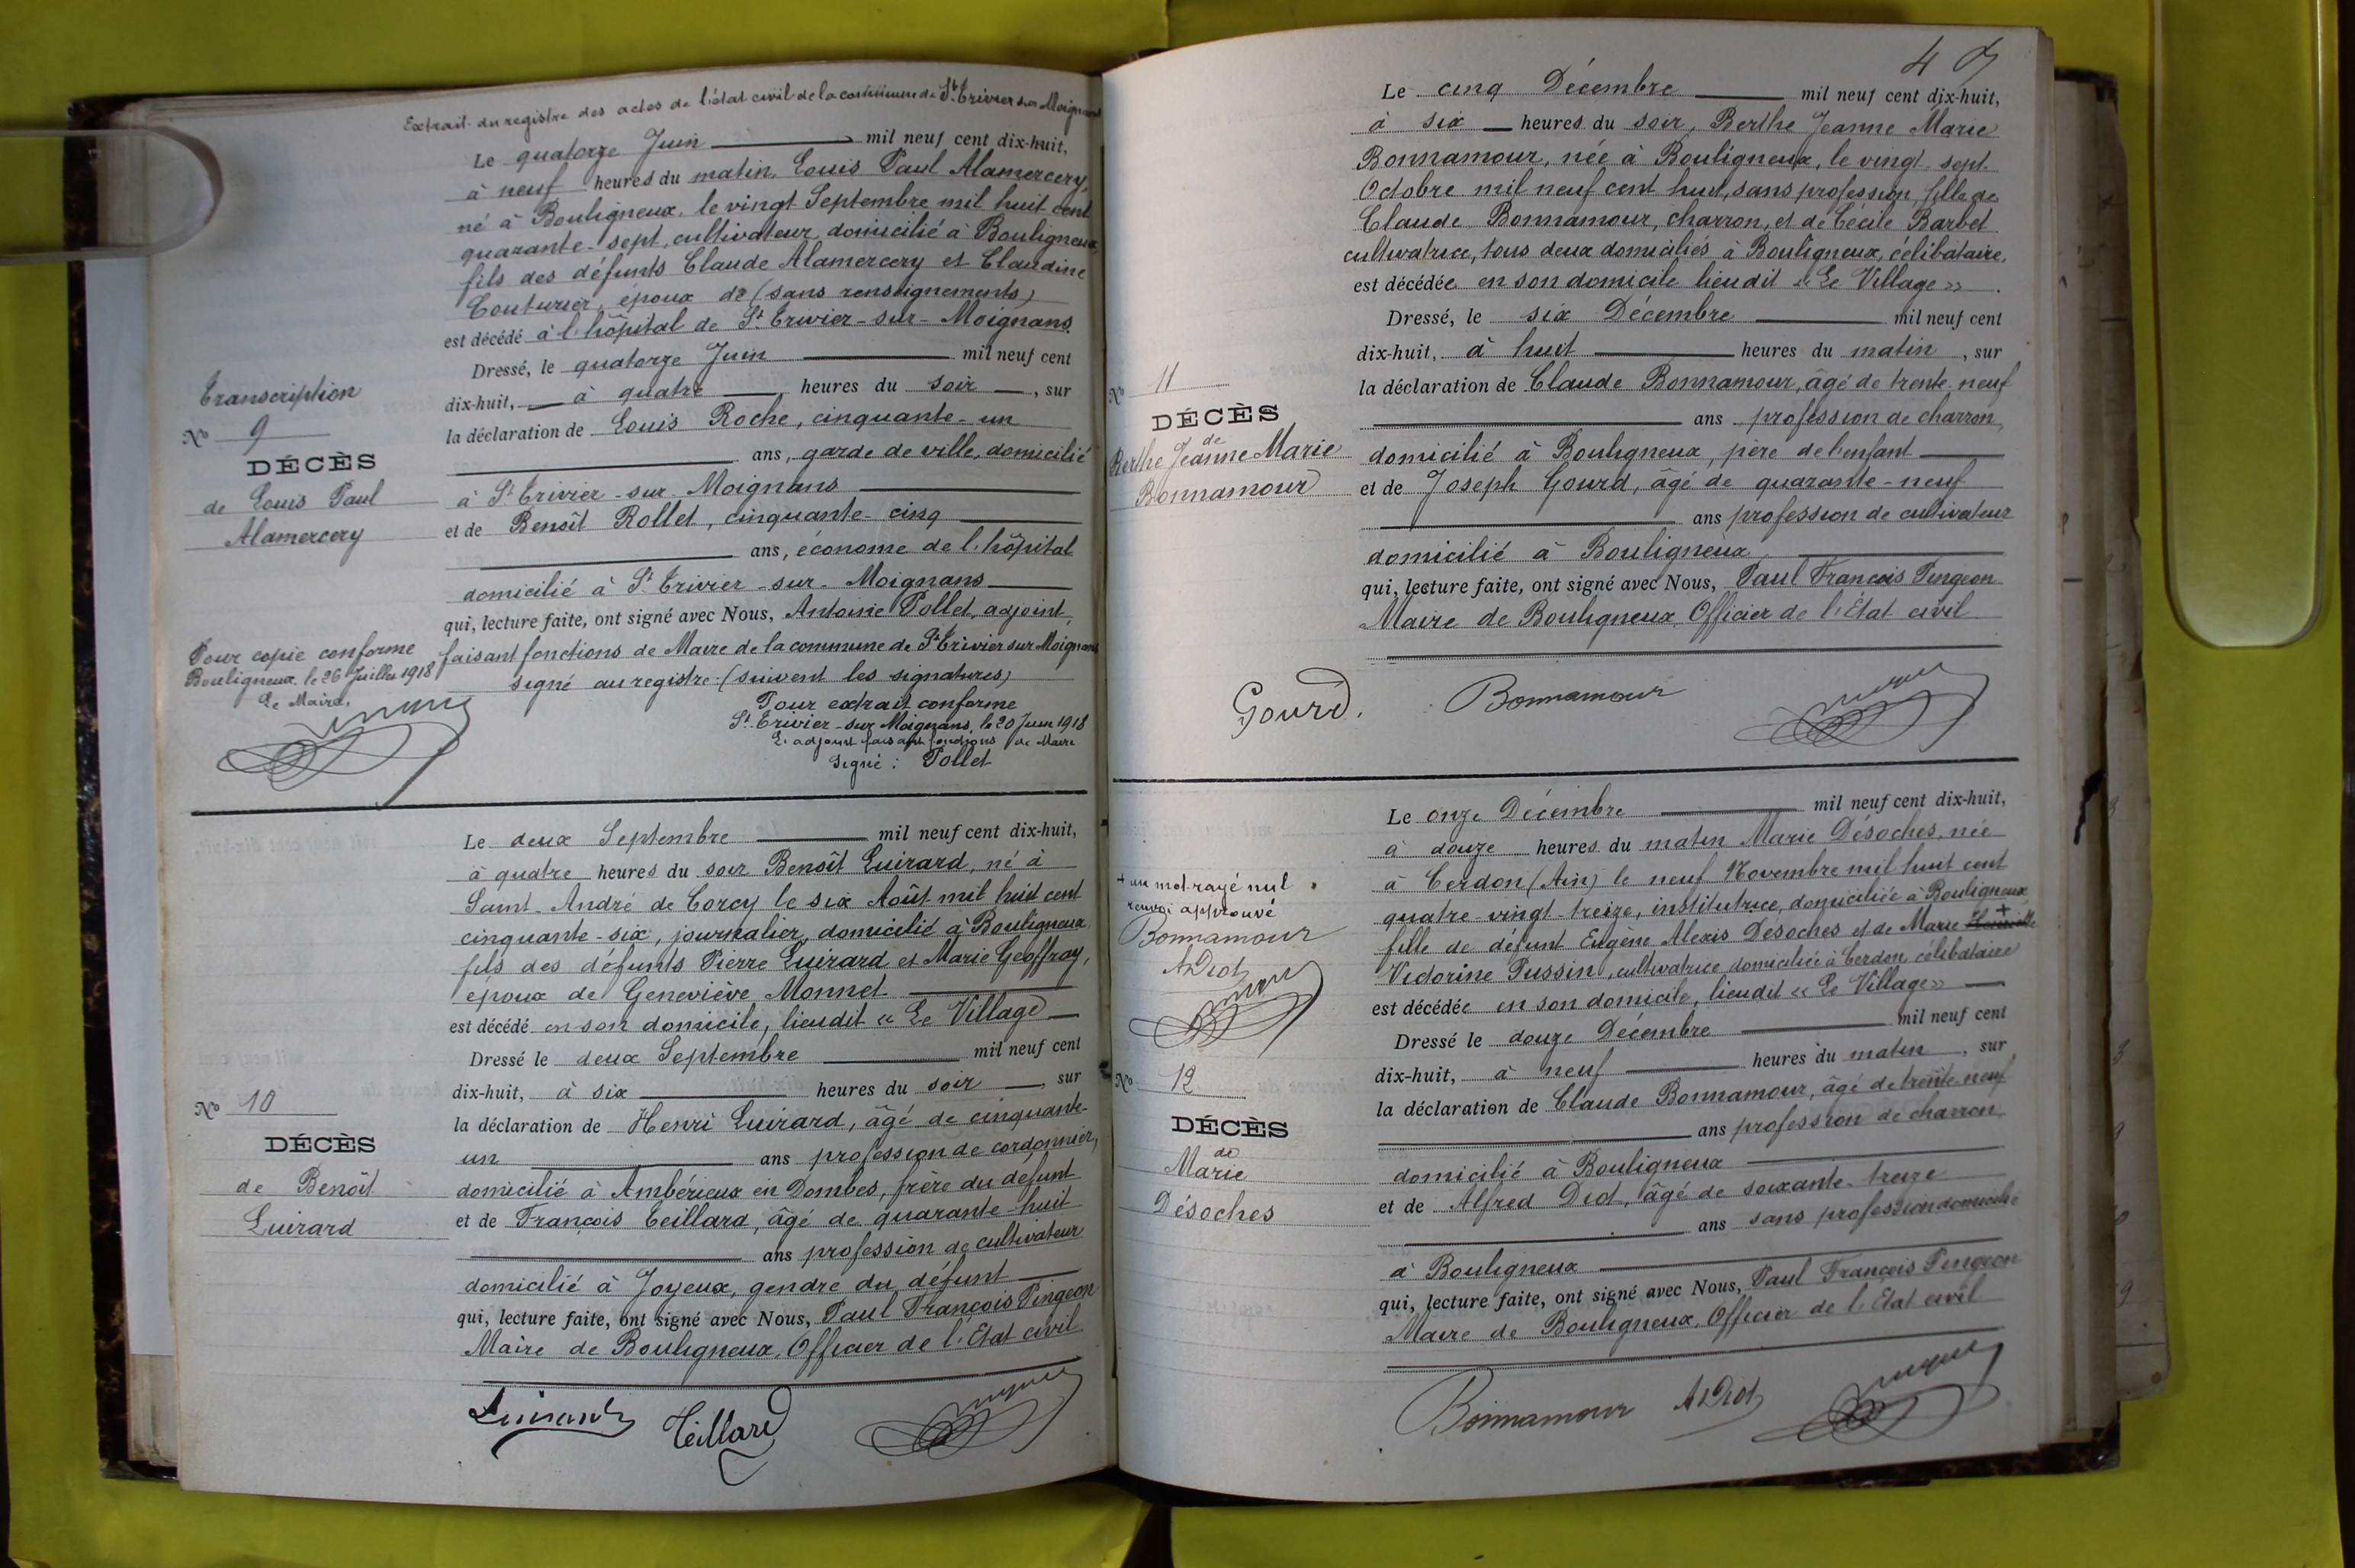 Extrait du registre des actes de l'état civil de la commune de St Trivier sur Moignans
Le quatorze Juin mil neuf cent dix-huit,
à neuf heures du matin, Louis Paul Alamercery,
né à Bouligneux, le vingt Septembre mil huit cent
quarante-sept, cultivateur, domicilié à Bouligneux,
fils des défunts Claude Alamercery et Claudine
Couturier, époux de (sans renseignements)
est décédé à l'hôpital de St Trivier-sur-Moignans.
Dressé, le quatorze Juin mil neuf cent
dix-huit, à quatre heures du soir, sur
la déclaration de Louis Roche, cinquante-un
ans, garde de ville, domicilié
à St Trivier-sur-Moignans
et de Benoît Rollet, cinquante-cinq
ans, économe de l'hôpital
domicilié à St Trivier-sur-Moignans
qui, lecture faite, ont signé avec Nous, Antoine Pollet, adjoint,
faisant fonctions de Maire de la commune de St Trivier sur Moignans
signé au registre : (suivent les signatures)
Pour extrait conforme
St Trivier-sur-Moignans, le 20 Juin 1918
L'adjoint faisant fonctions de Maire
Signé : Pollet
Transcription
No 9
DÉCÈS
de Louis Paul
Alamercery
Pour copie conforme
Bouligneux, le 26 Juillet 1918
Le Maire,
Le deux Septembre mil neuf cent dix-huit,
à quatre heures du soir Benoît Luirard, né à
Saint-André de Corcy le six Août mil huit cent
cinquante-six, journalier, domicilié à Bouligneux
fils des défunts Pierre Luirard et Marie Geoffray,
époux de Geneviève Monnet
est décédé en son domicile, lieudit « Le Village
Dressé le deux Septembre mil neuf cent
dix-huit, à six heures du soir, sur
la déclaration de Henri Luirard, âgé de cinquante-
un ans profession de cordonnier,
domicilié à Ambérieux en Dombes, frère du défunt
et de François Teillard, âgé de quarante-huit
ans profession de cultivateur
domicilié à Joyeux, gendre du défunt
qui, lecture faite, ont signé avec Nous, Paul François Pingeon
Maire de Bouligneux, Officier de l'Etat civil
No 10
DÉCÈS
de Benoît
Luirard
Luirard Teillard
Le cinq Décembre mil neuf cent dix-huit,
à six heures du soir, Berthe Jeanne Marie
Bonnamour, née à Bouligneux, le vingt-sept
Octobre mil neuf cent huit, sans profession, fille de
Claude Bonnamour, charron, et de Cécile Barbet
cultivatrice, tous deux domiciliés à Bouligneux, célibataire,
est décédée en son domicile lieudit « Le Village ».
Dressé, le six Décembre mil neuf cent
dix-huit, à huit heures du matin, sur
la déclaration de Claude Bonnamour, âgé de trente-neuf
ans profession de charron,
domicilié à Bouligneux, père de l'enfant
et de Joseph Gourd, âgé de quarante-neuf
ans profession de cultivateur
domicilié à Bouligneux
qui, lecture faite, ont signé avec Nous, Paul François Pingeon
Maire de Bouligneux, Officier de l'État civil
No 11
DÉCÈS
de
Berthe Jeanne Marie
Bonnamour
Gourd. Bonnamour
Le onze Décembre mil neuf cent dix-huit,
à douze heures du matin Marie Désoches, née
à Cerdon (Ain) le neuf Novembre mil huit cent
quatre-vingt-treize, institutrice, domiciliée à Bouligneux,
fille de défunt Eugène Alexis Désoches et de Marie +
Victorine Pussin, cultivatrice domiciliée à Cerdon, célibataire
est décédée en son domicile, lieudit « Le Village »
Dressé le douze Décembre mil neuf cent
dix-huit, à neuf heures du matin, sur
la déclaration de Claude Bonnamour, âgé de trente-neuf
ans profession de charron
domicilié à Bouligneux
et de Alfred Diot, âgé de soixante-treize
ans sans profession domicilié
à Bouligneux
qui, lecture faite, ont signé avec Nous, Paul François Pingeon
Maire de Bouligneux, Officier de l'Etat civil
+ un mot rayé nul
renvoi approuvé
Bonnamour
A Diot
No 12
DÉCÈS
de
Marie
Désoches
Bonnamour A Diot